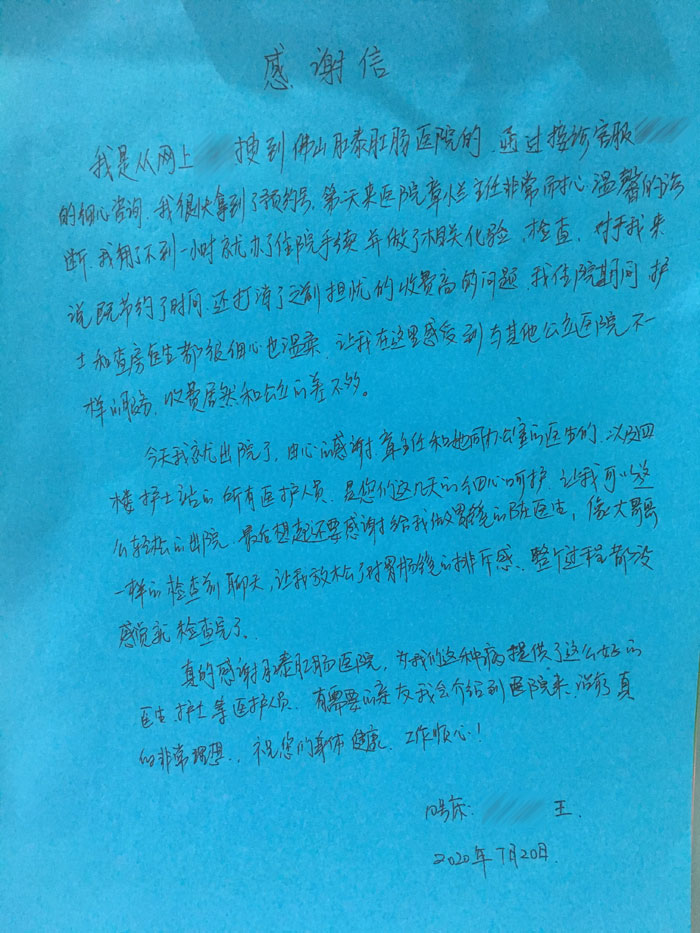 感谢信
我是从网上 搜到佛山肛泰肛肠医院的，通过接诊客服
的细心咨询，我很快拿到了预约号，第二天来医院章小兰主任非常耐心、温馨的诊
断，我用了不到一小时就办了住院手续并做了相关化验、检查，对于我来
说既节约了时间，还打消了之前担忧的收费高的问题，我住院期间护
士和查房医生都很细心也温柔，让我在这里感受到与其他公立医院不一
样的服务，收费居然和公立的差不多。
今天我就出院了，由心的感谢章主任和她同办公室的医生的，以及四
楼护士站的所有医护人员，是您们这几天的细心呵护，让我可以这
么轻松的出院，最后想起还要感谢给我做胃镜的陈医生，像大哥
一样的检查前聊天，让我放松了对胃肠镜的排斥感，整个过程都没
感觉就检查完了。
真的感谢肛泰肛肠医院，为我们这种病提供了这么好的
医生护士等医护人员，有需要的亲友我会介绍到医院来，治疗真
的非常理想，祝您们身体健康，工作顺心！
床： 王
2020年7月20日